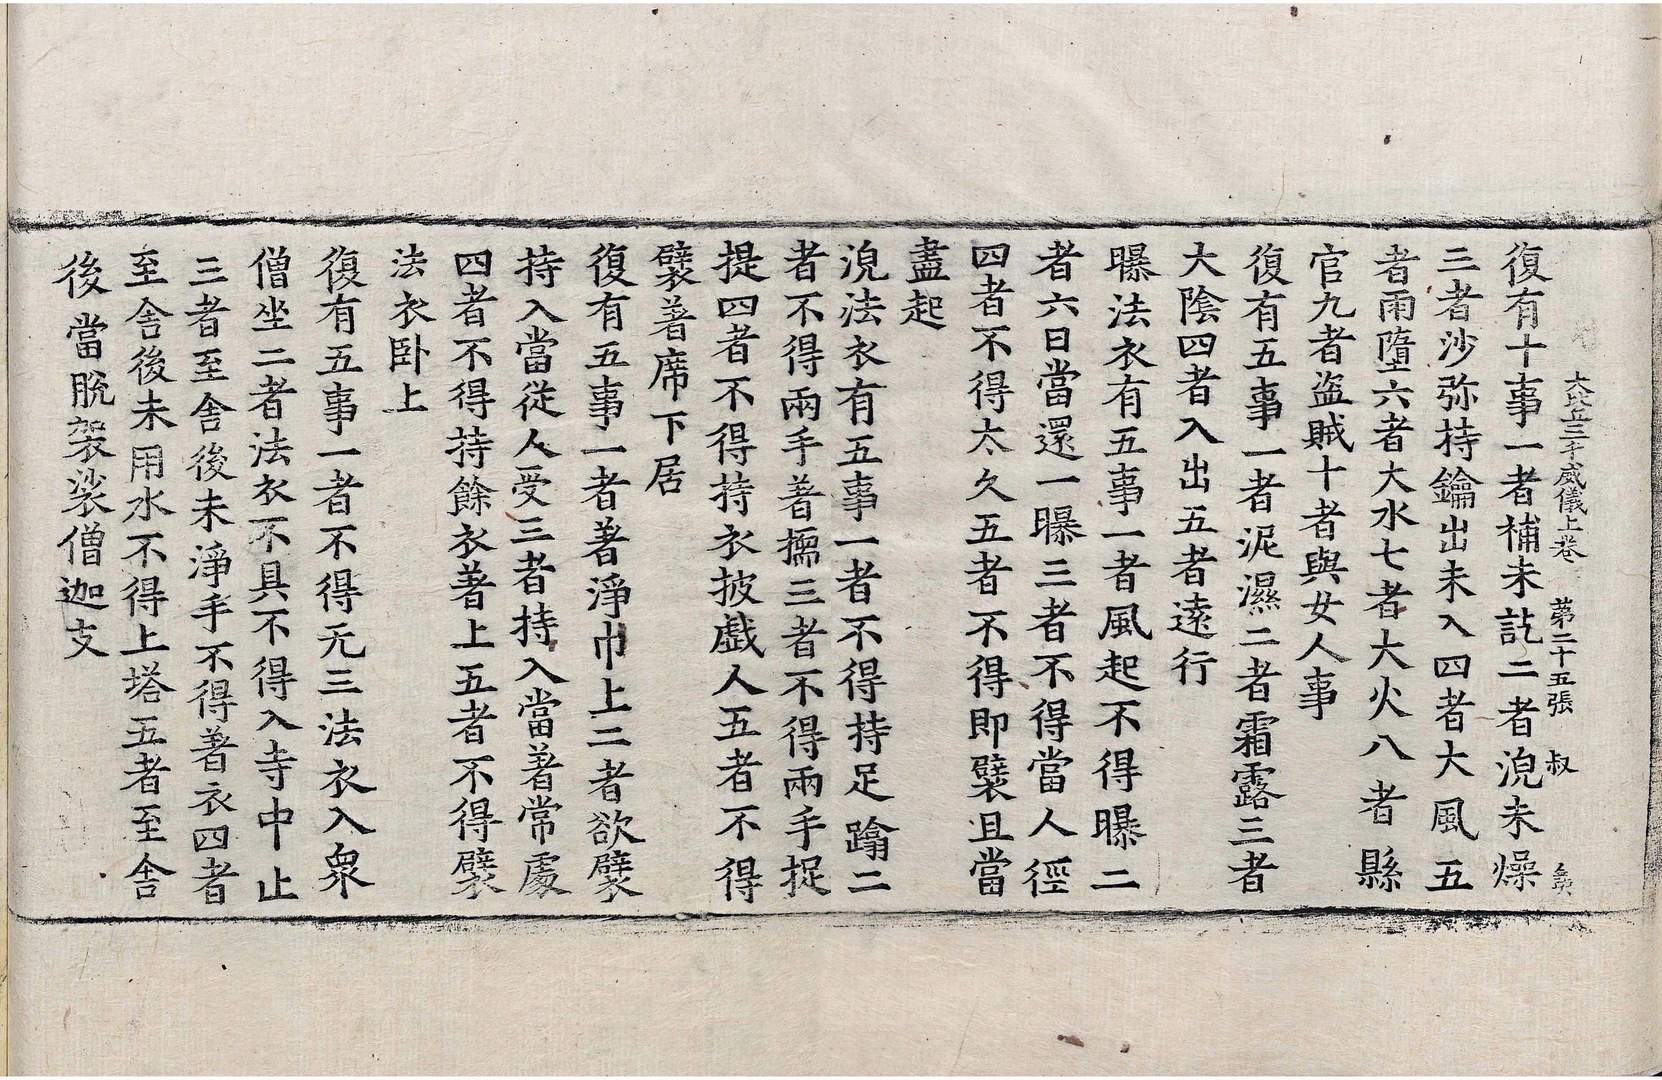 大比丘三千威儀上卷 第二十五張 叔
復有十事一者補未訖二者浣未燥
三者沙弥持鑰出未入四者大風五
者雨墮六者大水七者大火八者縣
官九者盜賊十者與女人事
復有五事一者泥濕二者霜露三者
大陰四者入出五者遠行
曝法衣有五事一者風起不得曝二
者六日當還一曝三者不得當人徑
四者不得太久五者不得即襞且當
盡起
浣法衣有五事一者不得持足蹹二
者不得兩手著擩三者不得兩手捉
提四者不得持衣披戲人五者不得
襞著席下居
復有五事一者著淨巾上二者欲襞
持入當從人受三者持入當著常處
四者不得持餘衣著上五者不得襞
法衣卧上
復有五事一者不得无三法衣入衆
僧坐二者法衣不具不得入寺中止
三者至舍後未淨手不得著衣四者
至舍後未用水不得上塔五者至舍
後當脫袈裟僧迦支